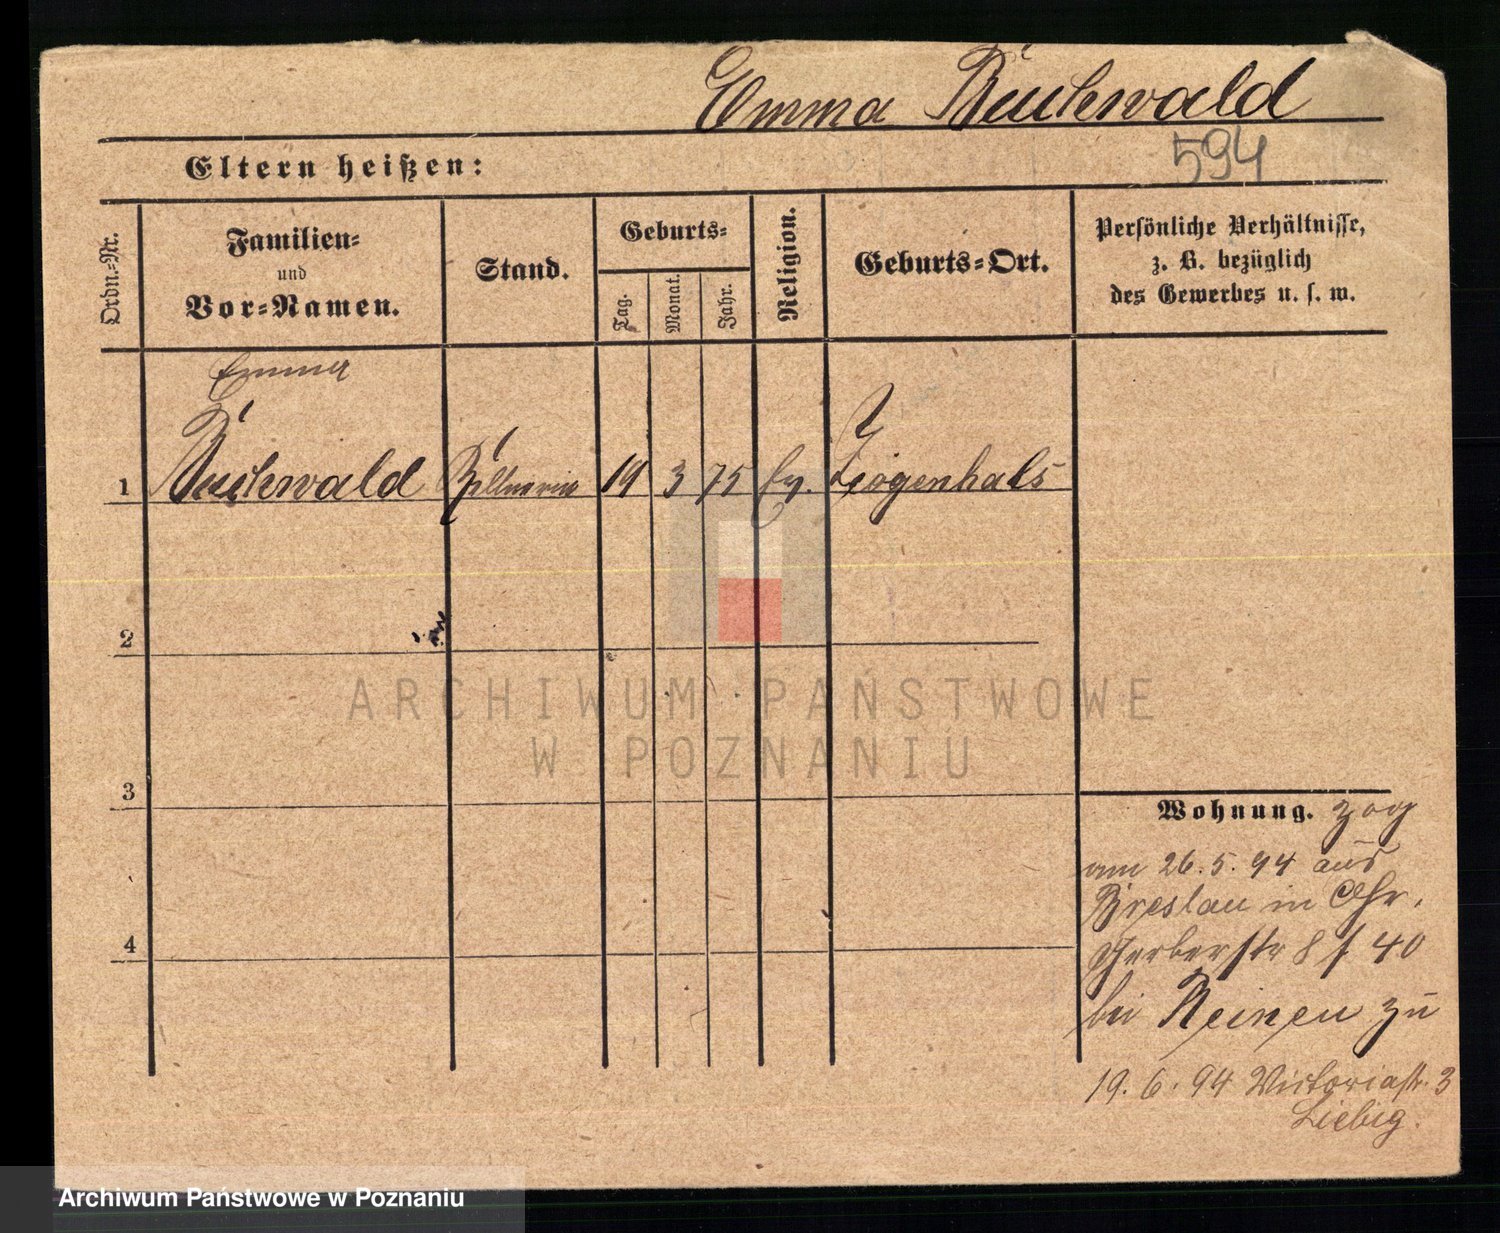 Emma Buchwald
594
Eltern heißen:
Ordn.-Nr.
Familien-
und
Vor-Namen.
Stand.
Geburts-
Tag.
Monat.
Jahr.
Religion.
Geburts-Ort.
Persönliche Verhältnisse,
z. B. bezüglich
des Gewerbes u. s. w.
Emma
1 Buchwald Kellnerin 19 3 75 Ev. Ziegenhals
2
3
4
Wohnung. zog
am 26.5.94 aus
Breslau in
Gerberstr 8 40
bei zu
19.6.94 Victoriastr. 3
Liebig.
ARCHIWUM PAŃSTWOWE
W POZNANIU
Archiwum Państwowe w Poznaniu